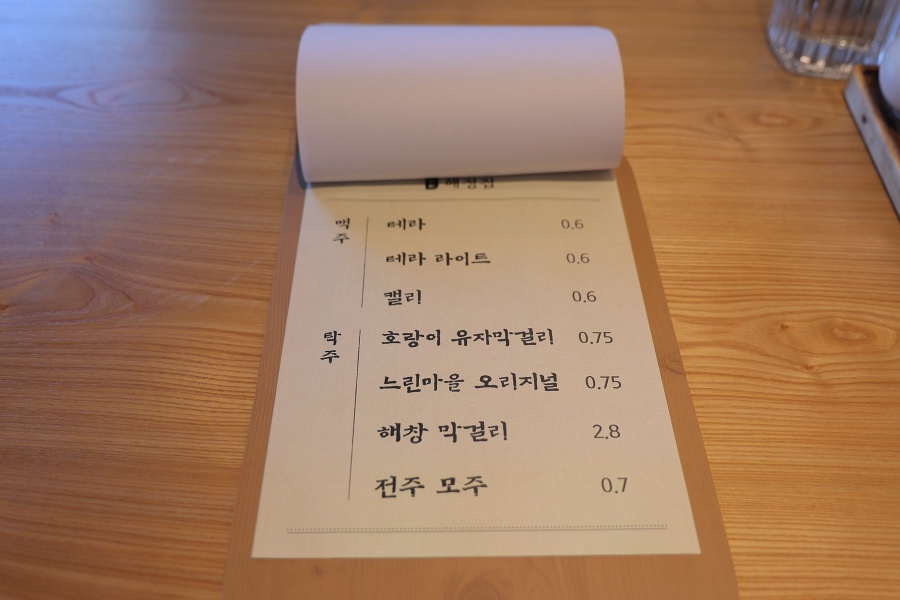 해정집
맥주
테라 0.6
테라 라이트 0.6
캘리 0.6
탁주
호랑이 유자막걸리 0.75
느린마을 오리지널 0.75
해창 막걸리 2.8
전주 모주 0.7